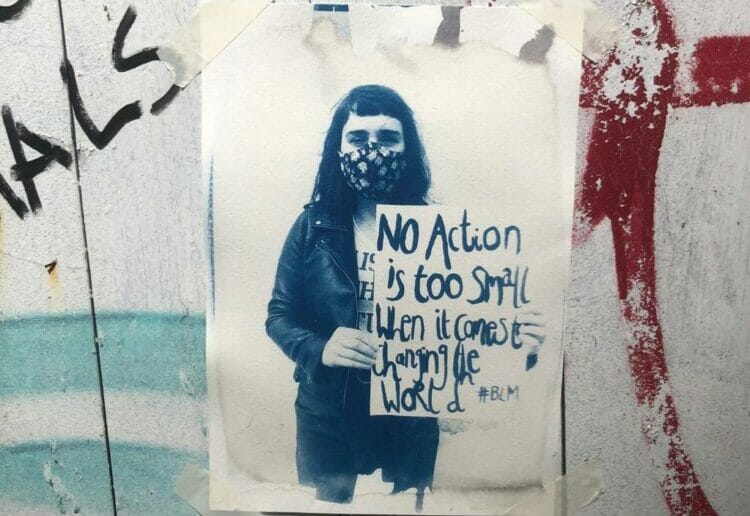 ALS
NO Action
is too small
When it comes to
changing the
World
#BLM